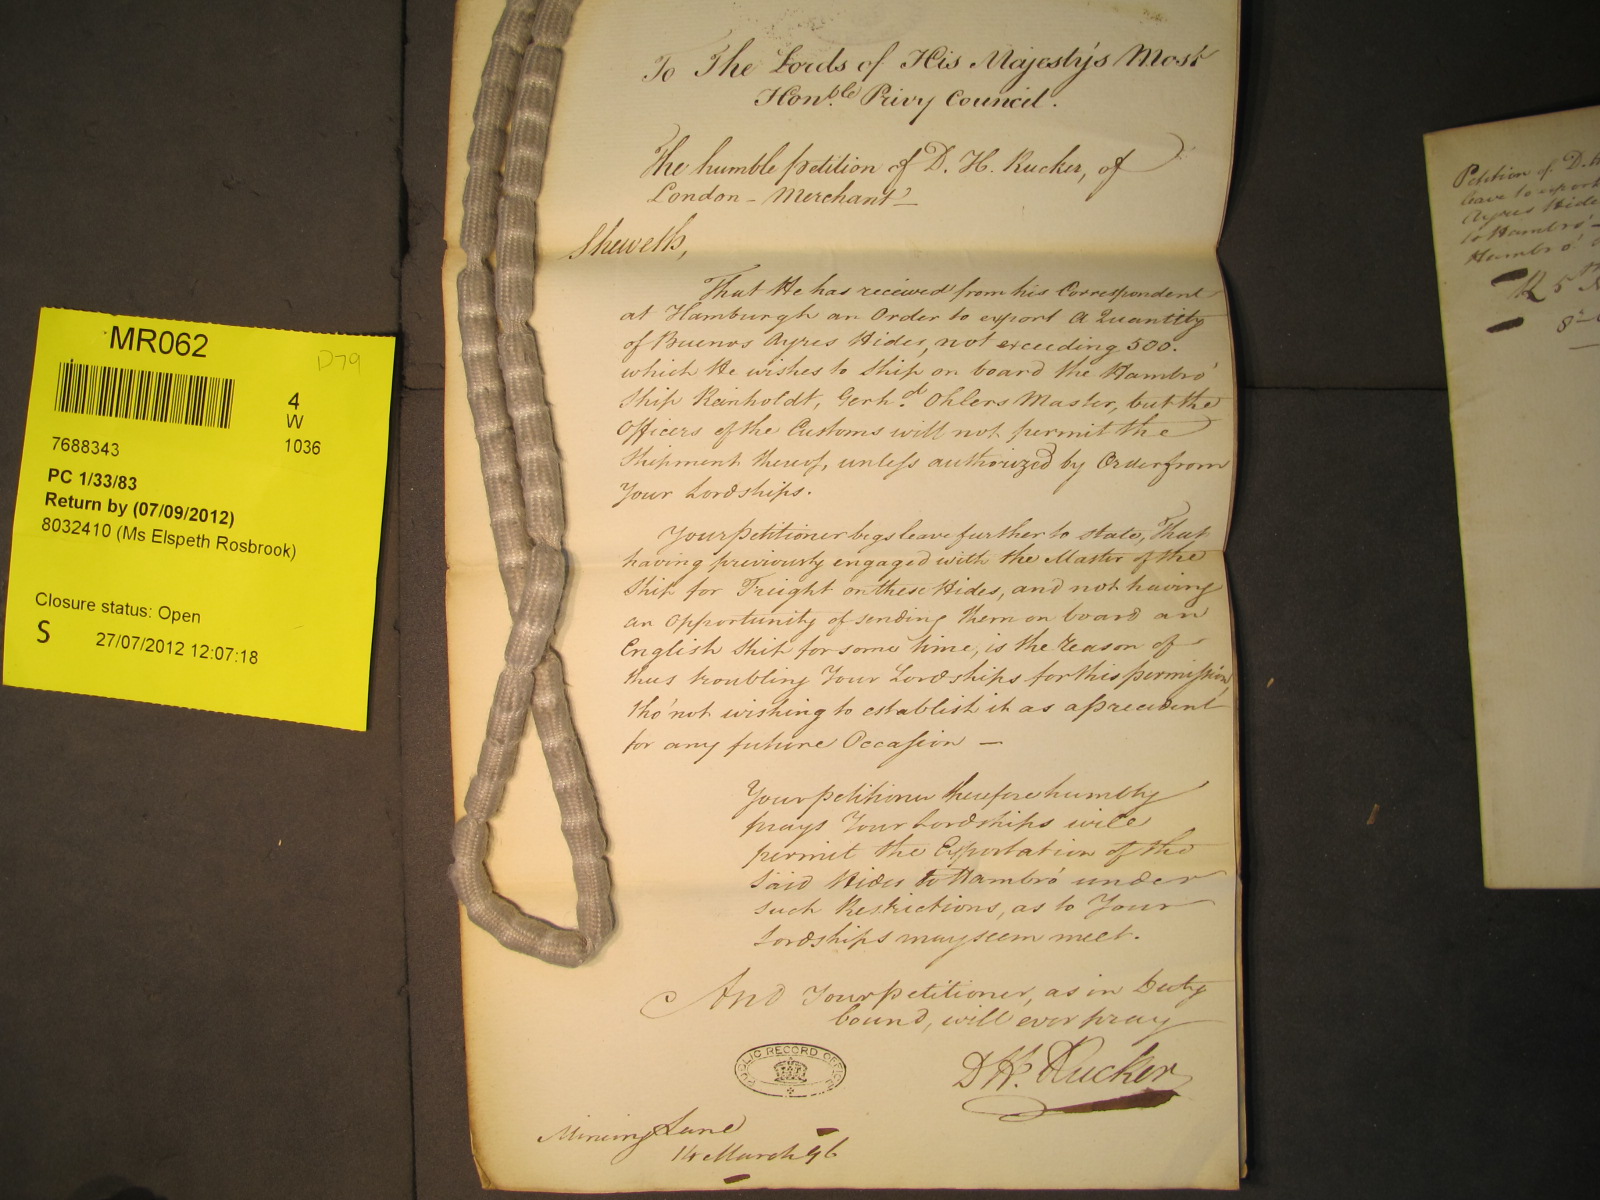 To The Lords of His Majesty's Most
Honble Privy Council.
The humble petition of D. H. Rucker, of
London - Merchant
Sheweth,
That He has received from his Correspondent
at Hamburgh an Order to export a Quantity
of Buenos Ayres Hides, not exceeding 500.
which He wishes to Ship on board the Hambro'
Ship Reinholdt, Gerhd. Ohlers Master, but the
Officers of the Customs will not permit the
Shipment thereof, unless authorized by Order from
Your Lordships.
Your petitioner begs leave further to state, That
having previously engaged with the Master of the
Ship for Freight on these Hides, and not having
an opportunity of sending them on board an
English Ship for some time, is the reason of
thus troubling Your Lordships for this permission,
tho' not wishing to establish it as a precedent
for any future Occasion —
Your petitioner therefore humbly
prays Your Lordships will
permit the Exportation of the
said Hides to Hambro' under
such Restrictions, as to Your
Lordships may seem meet.
And Your petitioner, as in Duty
bound, will ever pray
D H. Rucker
PUBLIC RECORD OFFICE
Mincing Lane
14 March 96
MR062
D79
4
W
7688343
1036
PC 1/33/83
Return by (07/09/2012)
8032410 (Ms Elspeth Rosbrook)
Closure status: Open
S 27/07/2012 12:07:18
Petition of D. H
leave to export
Ayres Hides
to Hambro' -
Hambro'
R 5th